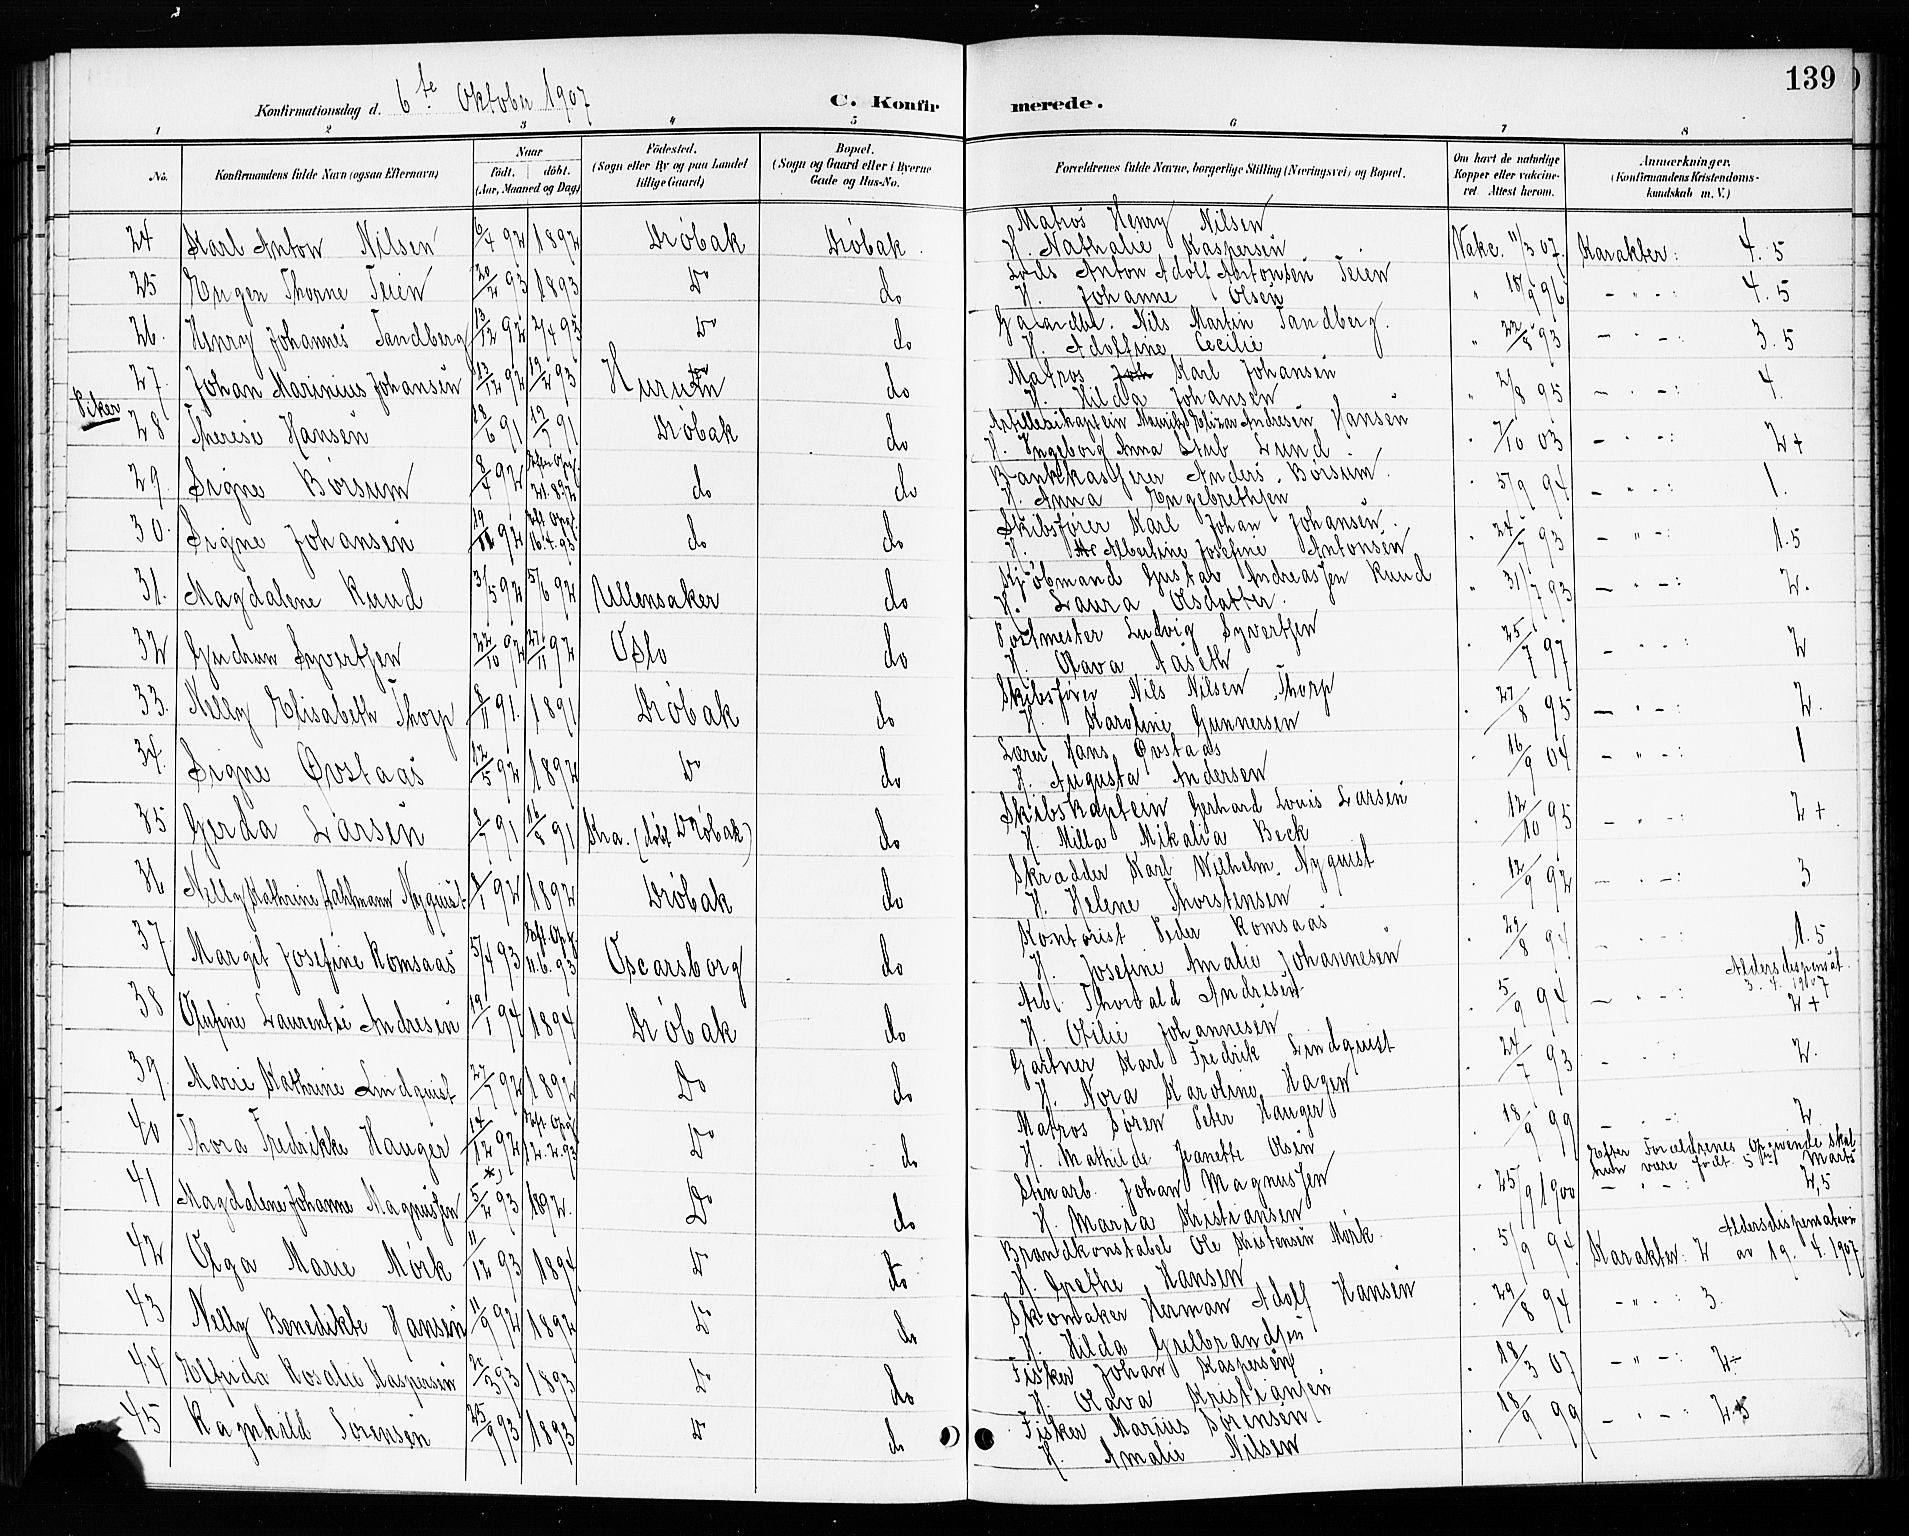 139
Konfirmationsdag d. 6te Oktober 1907
C. Konfirmerede.
1 2 3 4 5 6 7 8
No. Konfirmandens fulde Navn (ogsaa Efternavn) Naar født. døbt. (Aar, Maaned og Dag) Fødested. (Sogn eller By og paa Landet tillige Gaard) Bopæl. (Sogn og Gaard eller i Byerne Gade og Hus-No. Forældrenes fulde Navne, borgerlige Stilling (Næringsvei) og Bopæl. Om havt de naturlige Kopper eller vakcineret. Attest herom. Anmærkninger. (Konfirmandens Kristendomskundskab m. V.)
24 Karl Anton Nilsen 6/4 92 1892 Drøbak Drøbak. Matros Henry Nilsen Vakc. 11/3 07. Karakter: 4.5
H. Nathalie Kaspersen
25 Eugen Thorne Teien 20/2 93 1893 Do do Lods Anton Adolf Antonsen Teien " 18/9 96 - " - : 4.5
H. Johanne Olsen
26. Henry Johannes Sandberg 13/12 92 2/4 93 Do do Nils Martin Sandberg. " 22/8 93 - " - : 3.5
H. Adolfine Cecilie
27. Johan Marinius Johansen 13/12 92 12/2 93 Hurum do Matros Karl Johansen " 2/8 95 - " - : 4.
H. Hilda Johansen
Piker
28 Therese Hansen 18/6 91 12/7 91 Drøbak do Artillerikaptein Andresen Hansen " 7/10 03 - " - : 2+
H. Ingeborg Anna Stub Lund.
29. Signe Børsum 8/4 92 Efter Opg. do do Bankkasserer Anders Børsum. " 5/9 94 - " - : 1.
H. Anna Engebrethsen
30. Signe Johansen 19/11 92 Eft. Opg. 16.4.93 do do Skibsfører Karl Johan Johansen. " 24/7 93 - " - : 1.5
H. Albertine Josefine Antonsen
31. Magdalene Ruud 3/5 92 5/6 92 Ullensaker do Kjøbmand Gustav Andreassen Ruud " 31/7 93 - " - : 2.
H. Laura Olsdatter.
32 Gudrun Syvertsen 22/10 92 27/11 92 Oslo do Postmester Ludvig Syvertsen " 25/7 97 - " - : 2
H. Olava Aaseth
33. Nelly Elisabeth Thorp 8/11 91. 1891 Drøbak do Skibsfører Nils Nilsen Thorp " 27/8 95 - " - : 2.
H. Karoline Gunnersen
34. Signe Øvstaas 12/5 92 1892 Do do Lærer Hans Øvstaas " 16/9 04 - " - : 1
H. Augusta Andersen
35 Gerda Larsen 8/7 91 16/8 91 Kra. (døbt Drøbak) do Skibskaptein Gerhard Louis Larsen " 12/10 95 - " - : 2+
H. Milla Mikalia Beck
36 Nelly Kathrine Dahlmann Nyquist 8/1 92 1892 Drøbak do Skrædder Karl Wilhelm. Nyquist " 12/9 92 - " - : 3
H. Helene Thorstensen
37. Margit Josefine Romsaas 5/4 93 Eft. Opg. 11.6.93 Oscarsborg do Kontorist Peder Romsaas " 29/8 94 - " - : 1.5
H. Josefine Amalie Johannesen
38 Olufine Laurentse Andresen 19/1 94 1894 Drøbak do Arb. Thorvald Andresen " 5/9 94 - " - : Aldersdispensat. 3.4.1907 2+
H. Otilie Johannesen
39. Marie Kathrine Lindquist 27/7 92 1892 Do do Gartner Karl Fredrik Lindquist " 24/7 93 - " - : 2.
H. Nora Karoline Hagen
40 Thora Fredrikke Hauger 14/12 92 Eft. Opg. 12.2.93 Do do Matros Søren Peter Hauger " 18/9 99 - " - : 2
H. Mathilde Jeanette Olsen
41 Magdalene Johanne Magnussen *) 5/2 93 1892. Do do Stenarb. Johan Magnussen " 25/9 1900 Efter Forældrenes Opgivende skal hun være født 5te Marts - " - : 2,5
H. Maria Kristiansen
42 Olga Marie Mørk 11/12 93 1894. Do do Brandkonstabel Ole Kristensen Mørk. " 5/9 94. Karakter: 2 Aldersdispensation av 19.4.1907
H. Grethe Hansen
43 Nelly Benedikte Hansen 11/9 92 1892 Do do Skomaker Herman Adolf Hansen " 29/8 94 - " - : 3.
H. Hilda Gulbrandsen
44 Elfrida Rosalie Kaspersen 20/3 93 1893 Do do Fisker Johan Kaspersen " 18/3 07 - " - : 2÷
H. Olava Kristiansen
45 Ragnhild Sørensen 25/9 93 1893 Do do Fisker Marius Sørensen " 18/9 99 - " - : 2.5
H. Amalie Nilsen